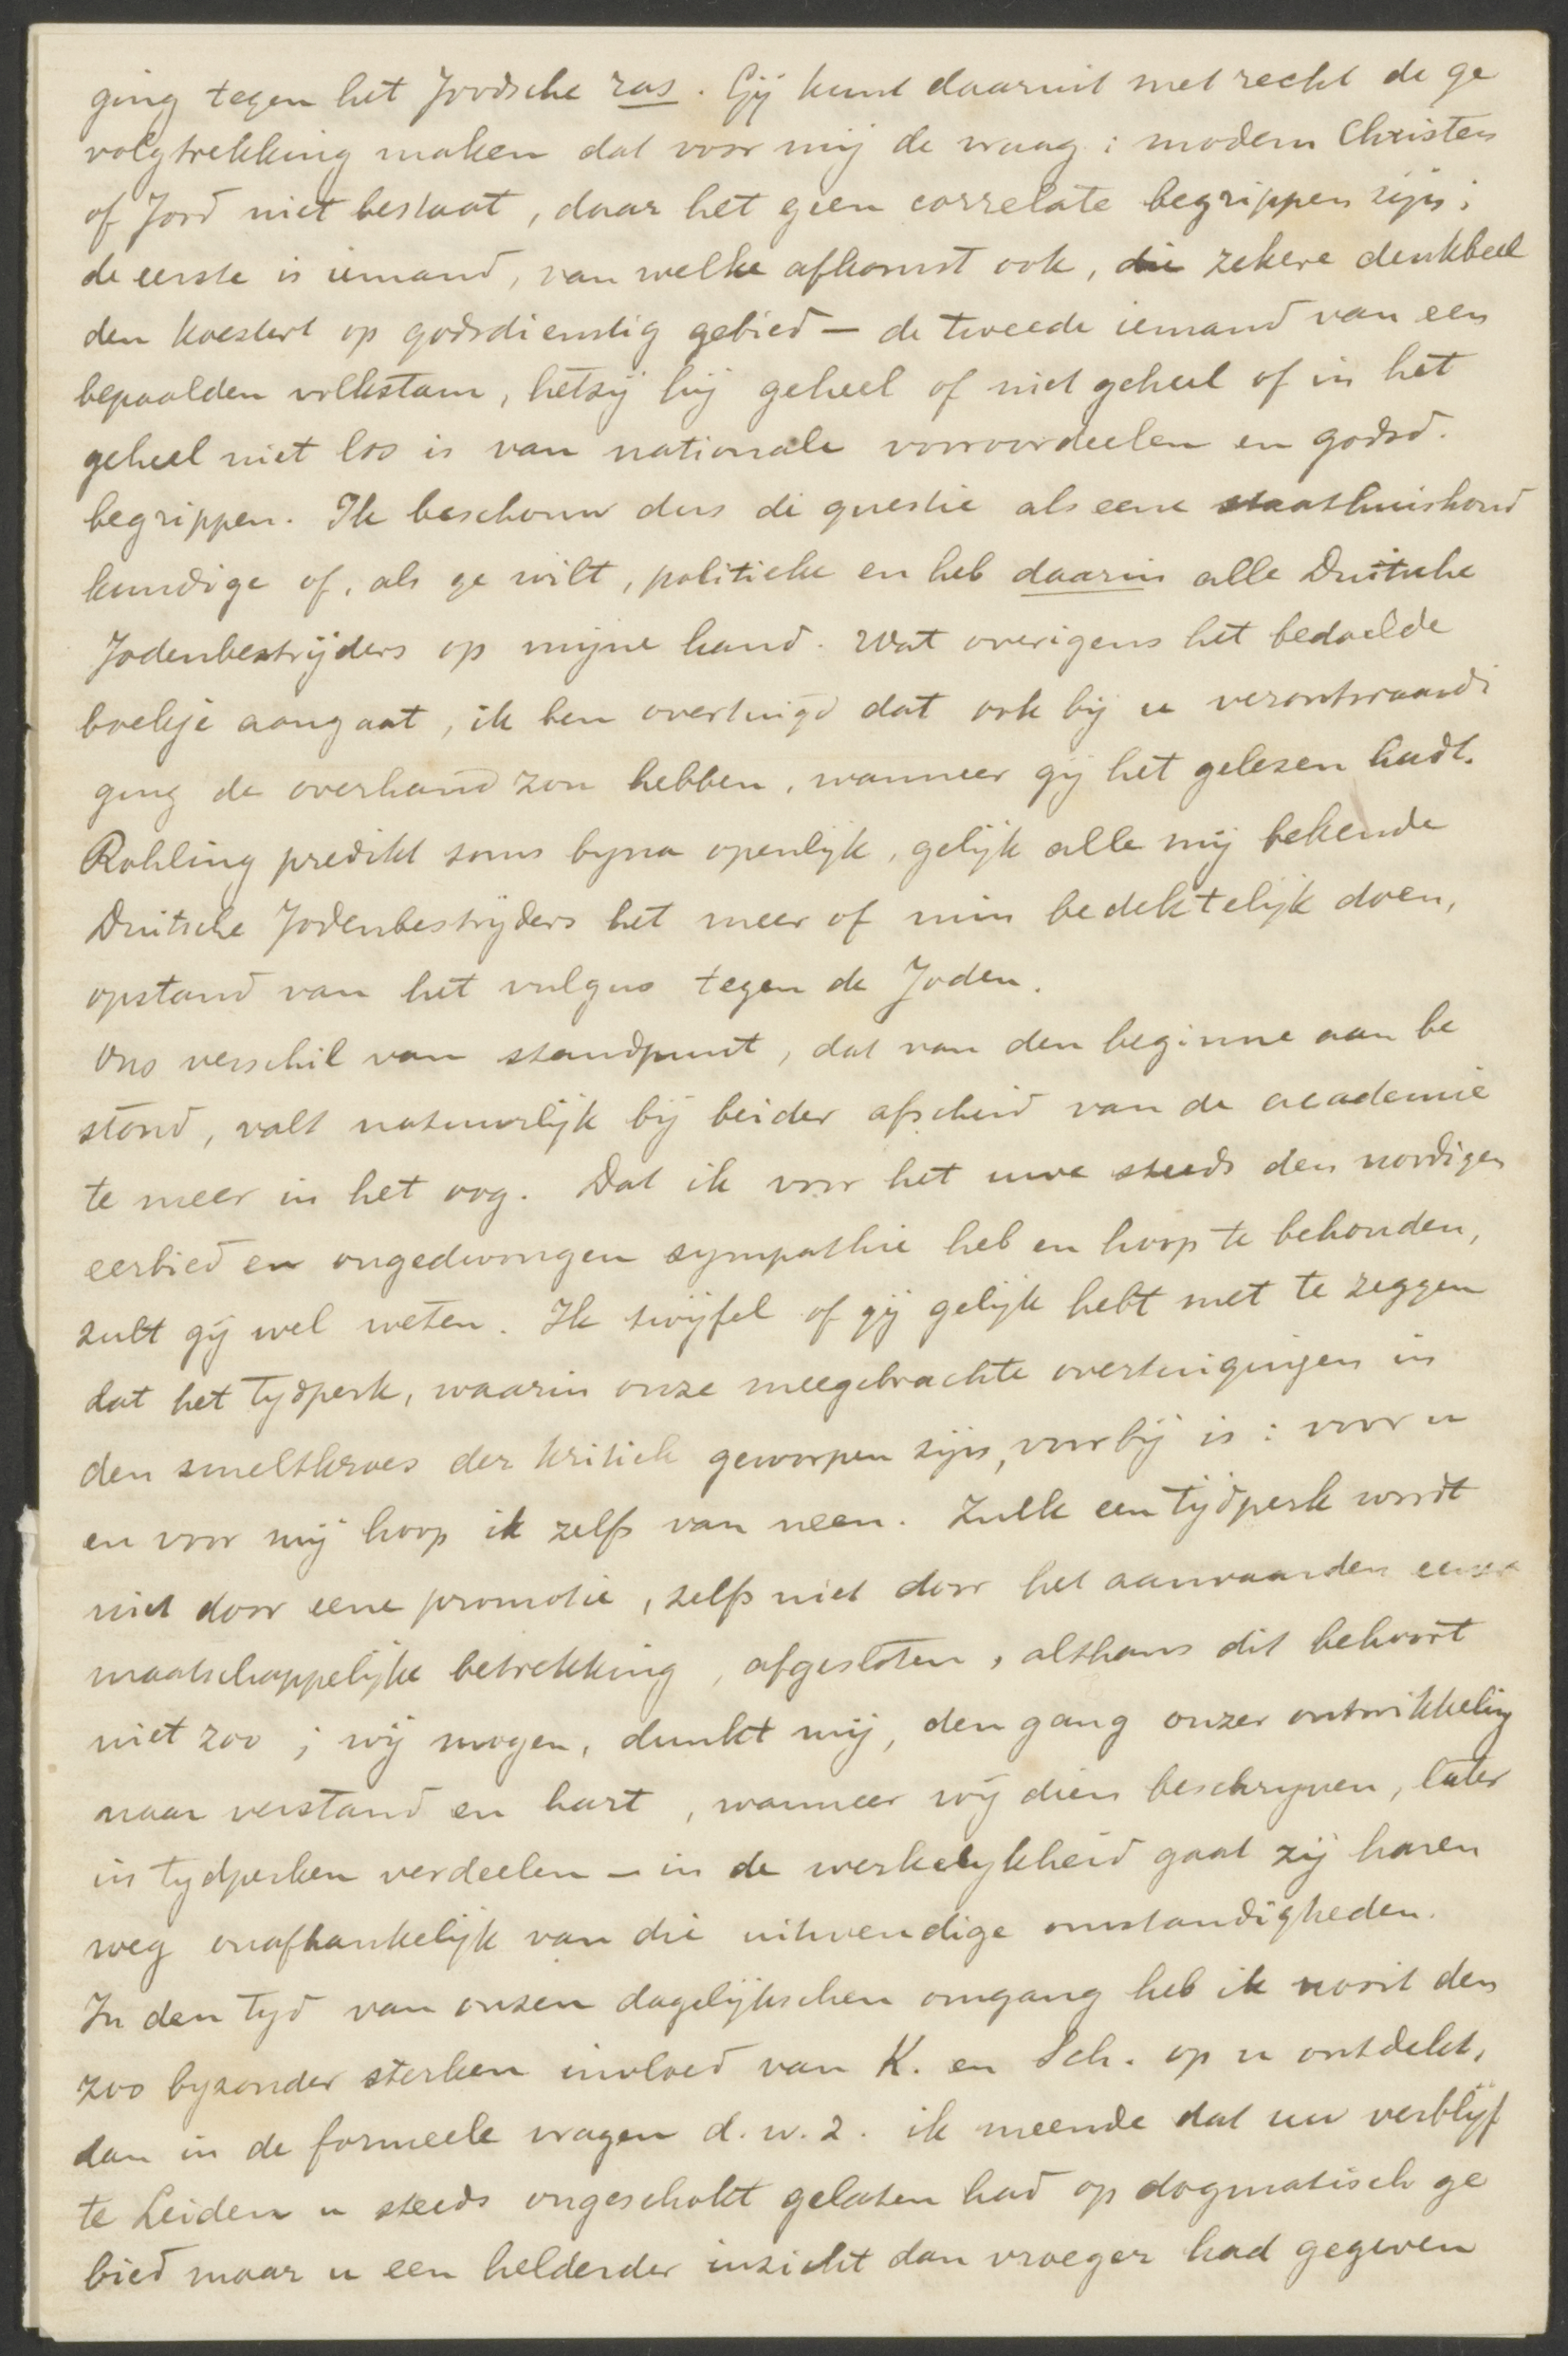 ging tegen het Joodsche ras. Gij kunt daaruit met recht de ge
volgtrekking maken dat voor mij de vraag: modern Christen
of Jood niet bestaat, daar het geen correlate begrippen zijn:
de eerste is iemand, van welke afkomst ook, die zekere denkbeel
den koestert op godsdienstig gebied — de tweede iemand van een
bepaalden volksstam, hetzij hij geheel of niet geheel of in het
geheel niet los is van nationale vooroordeelen en godsd.
begrippen. Ik beschouw dus de questie als eene staathuishoud
kundige of, als ge wilt, politieke en heb daarin alle Duitsche
Jodenbestrijders op mijne hand. Wat overigens het bedoelde
boekje aangaat, ik ben overtuigd dat ook bij u verontwaardi
ging de overhand zou hebben, wanneer gij het gelezen hadt.
Rohling predikt soms byna openlijk, gelijk alle mij bekende
Duitsche Jodenbestrijders het meer of min bedektelijk doen,
opstand van het vulgus tegen de Joden.
Ons verschil van standpunt, dat van den beginne aan be
stond, valt natuurlijk bij beider afscheid van de academie
te meer in het oog. Dat ik voor het uwe steeds den noodigen
eerbied en ongedwongen sympathie heb en hoop te behouden,
zult gij wel weten. Ik twijfel of gij gelijk hebt met te zeggen
dat het tydperk, waarin onze meegebrachte overtuigingen in
den smeltkroes der kritiek geworpen zijn, voorbij is: voor u
en voor mij hoop ik zelfs van neen. Zulk een tijdperk wordt
niet door eene promotie, zelfs niet door het aanvaarden eener
maatschappelijke betrekking, afgesloten, althans dit behoort
niet zoo; wij mogen, dunkt mij, den gang onzer ontwikkeling
naar verstand en hart, wanneer wij dien beschrijven, later
in tydperken verdeelen — in de werkelykheid gaat zij haren
weg onafhankelijk van die uitwendige omstandigheden.
In den tyd van onzen dagelijkschen omgang heb ik nooit den
zoo byzonder sterken invloed van K. en Sch. op u ontdekt,
dan in de formeele vragen d.w.z. ik meende dat uw verblijf
te Leiden u steeds ongeschokt gelaten had op dogmatisch ge
bied maar u een helderder inzicht dan vroeger had gegeven